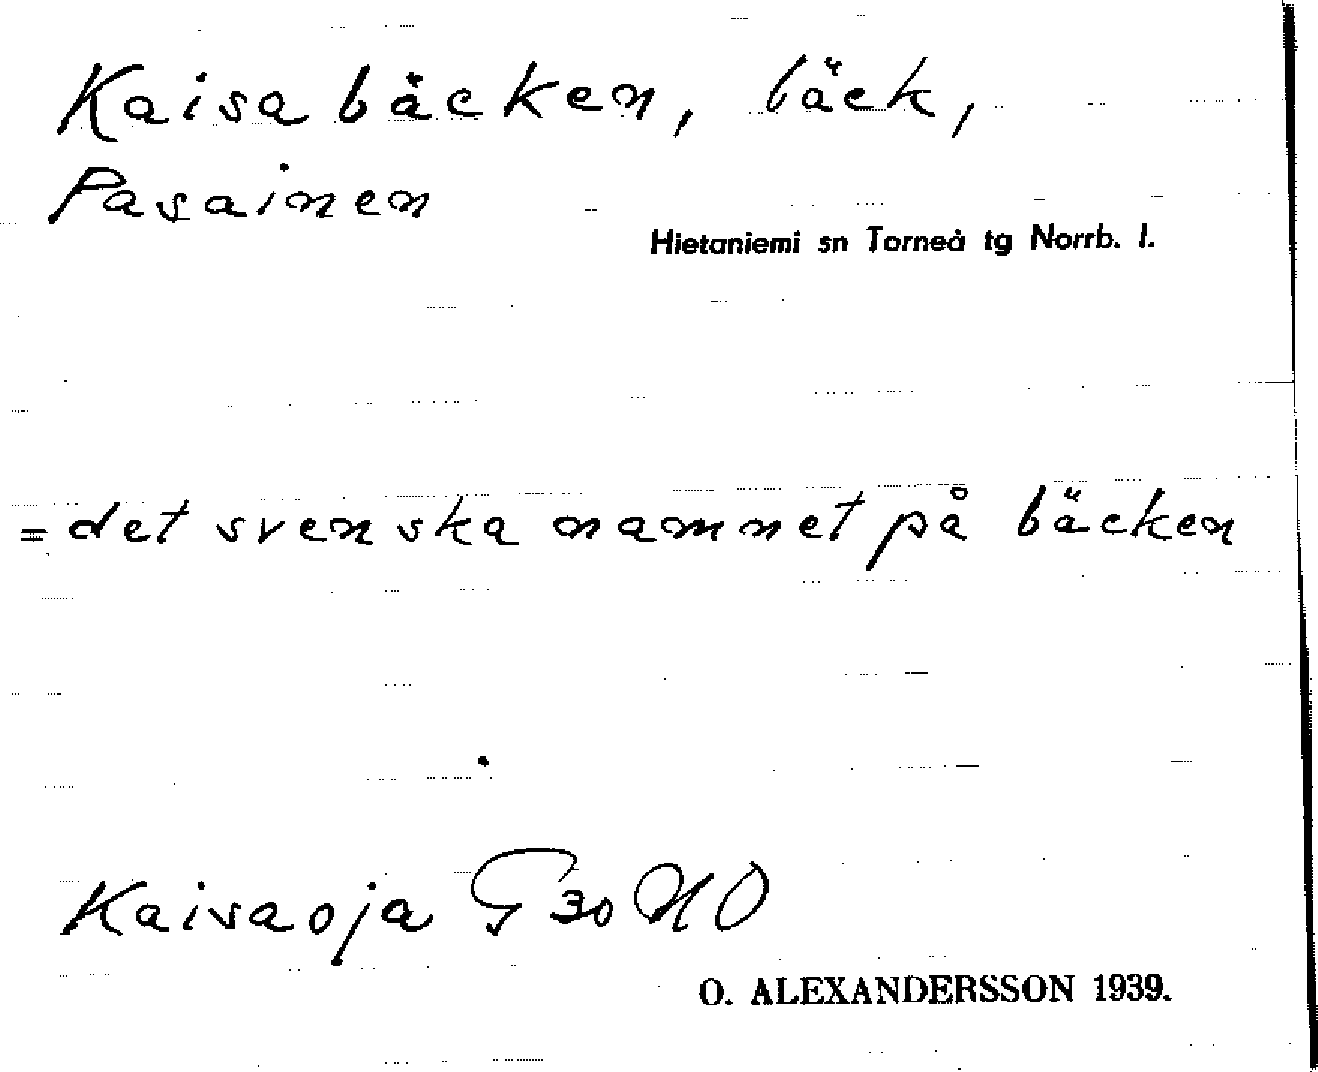 Kaisabäcken, bäck,
Pasainen
Hietaniemi sn Torneå tg Norrb. l.
= det svenska namnet på bäcken
Kaisaoja G 30 NO
O. ALEXANDERSSON 1939.